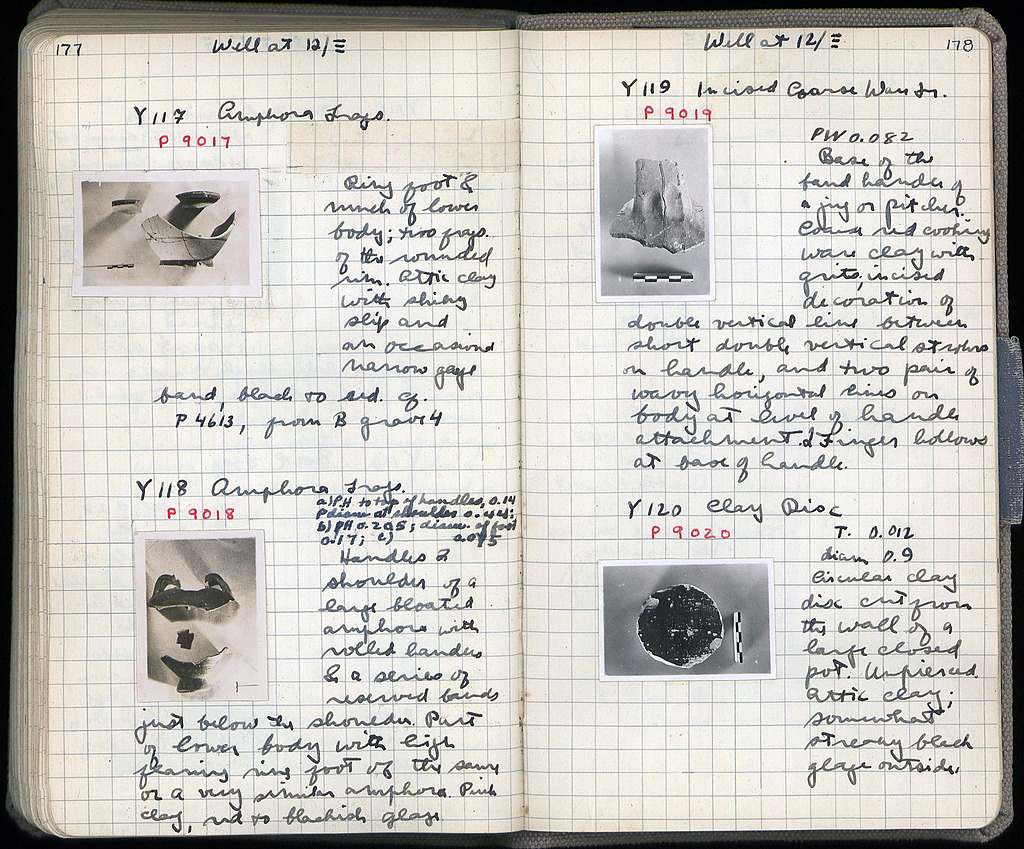 177
Well at 12/Ξ
Y 117 Amphora Frags.
P 9017
Ring foot &
much of lower
body; two frags.
of the rounded
rim. Attic clay
with shiny
slip and
an occasional
narrow glaze
band, black to red. cf.
P 4613, from B grave 4
Y 118 Amphora Frags.
P 9018
a) PH to top of handles, 0.14
P diam at shoulder
b) PH 0.205; diam. of foot
0.17; c) 0.095
Handles &
shoulder of a
large bloated
amphora with
rolled handles
& a series of
reserved bands
just below the shoulder. Part
of lower body with high
flaring ring foot of the same
or a very similar amphora. Pink
clay, red to blackish glaze
Well at 12/Ξ
178
Y 119 Incised Coarse Ware fr.
P 9019
PW 0.082
Base of the
band handle of
a jug or pitcher.
Coarse red cooking
ware clay with
grits, incised
decoration of
double vertical line between
short double vertical strokes
on handle, and two pair of
wavy horizontal lines on
body at level of handle
attachment. 2 Finger hollows
at base of handle.
Y 120 Clay Disc
P 9020
T. 0.012
diam 0.9
Circular clay
disc cut from
the wall of a
large closed
pot. Unpierced.
Attic clay;
somewhat
streaky black
glaze outside.